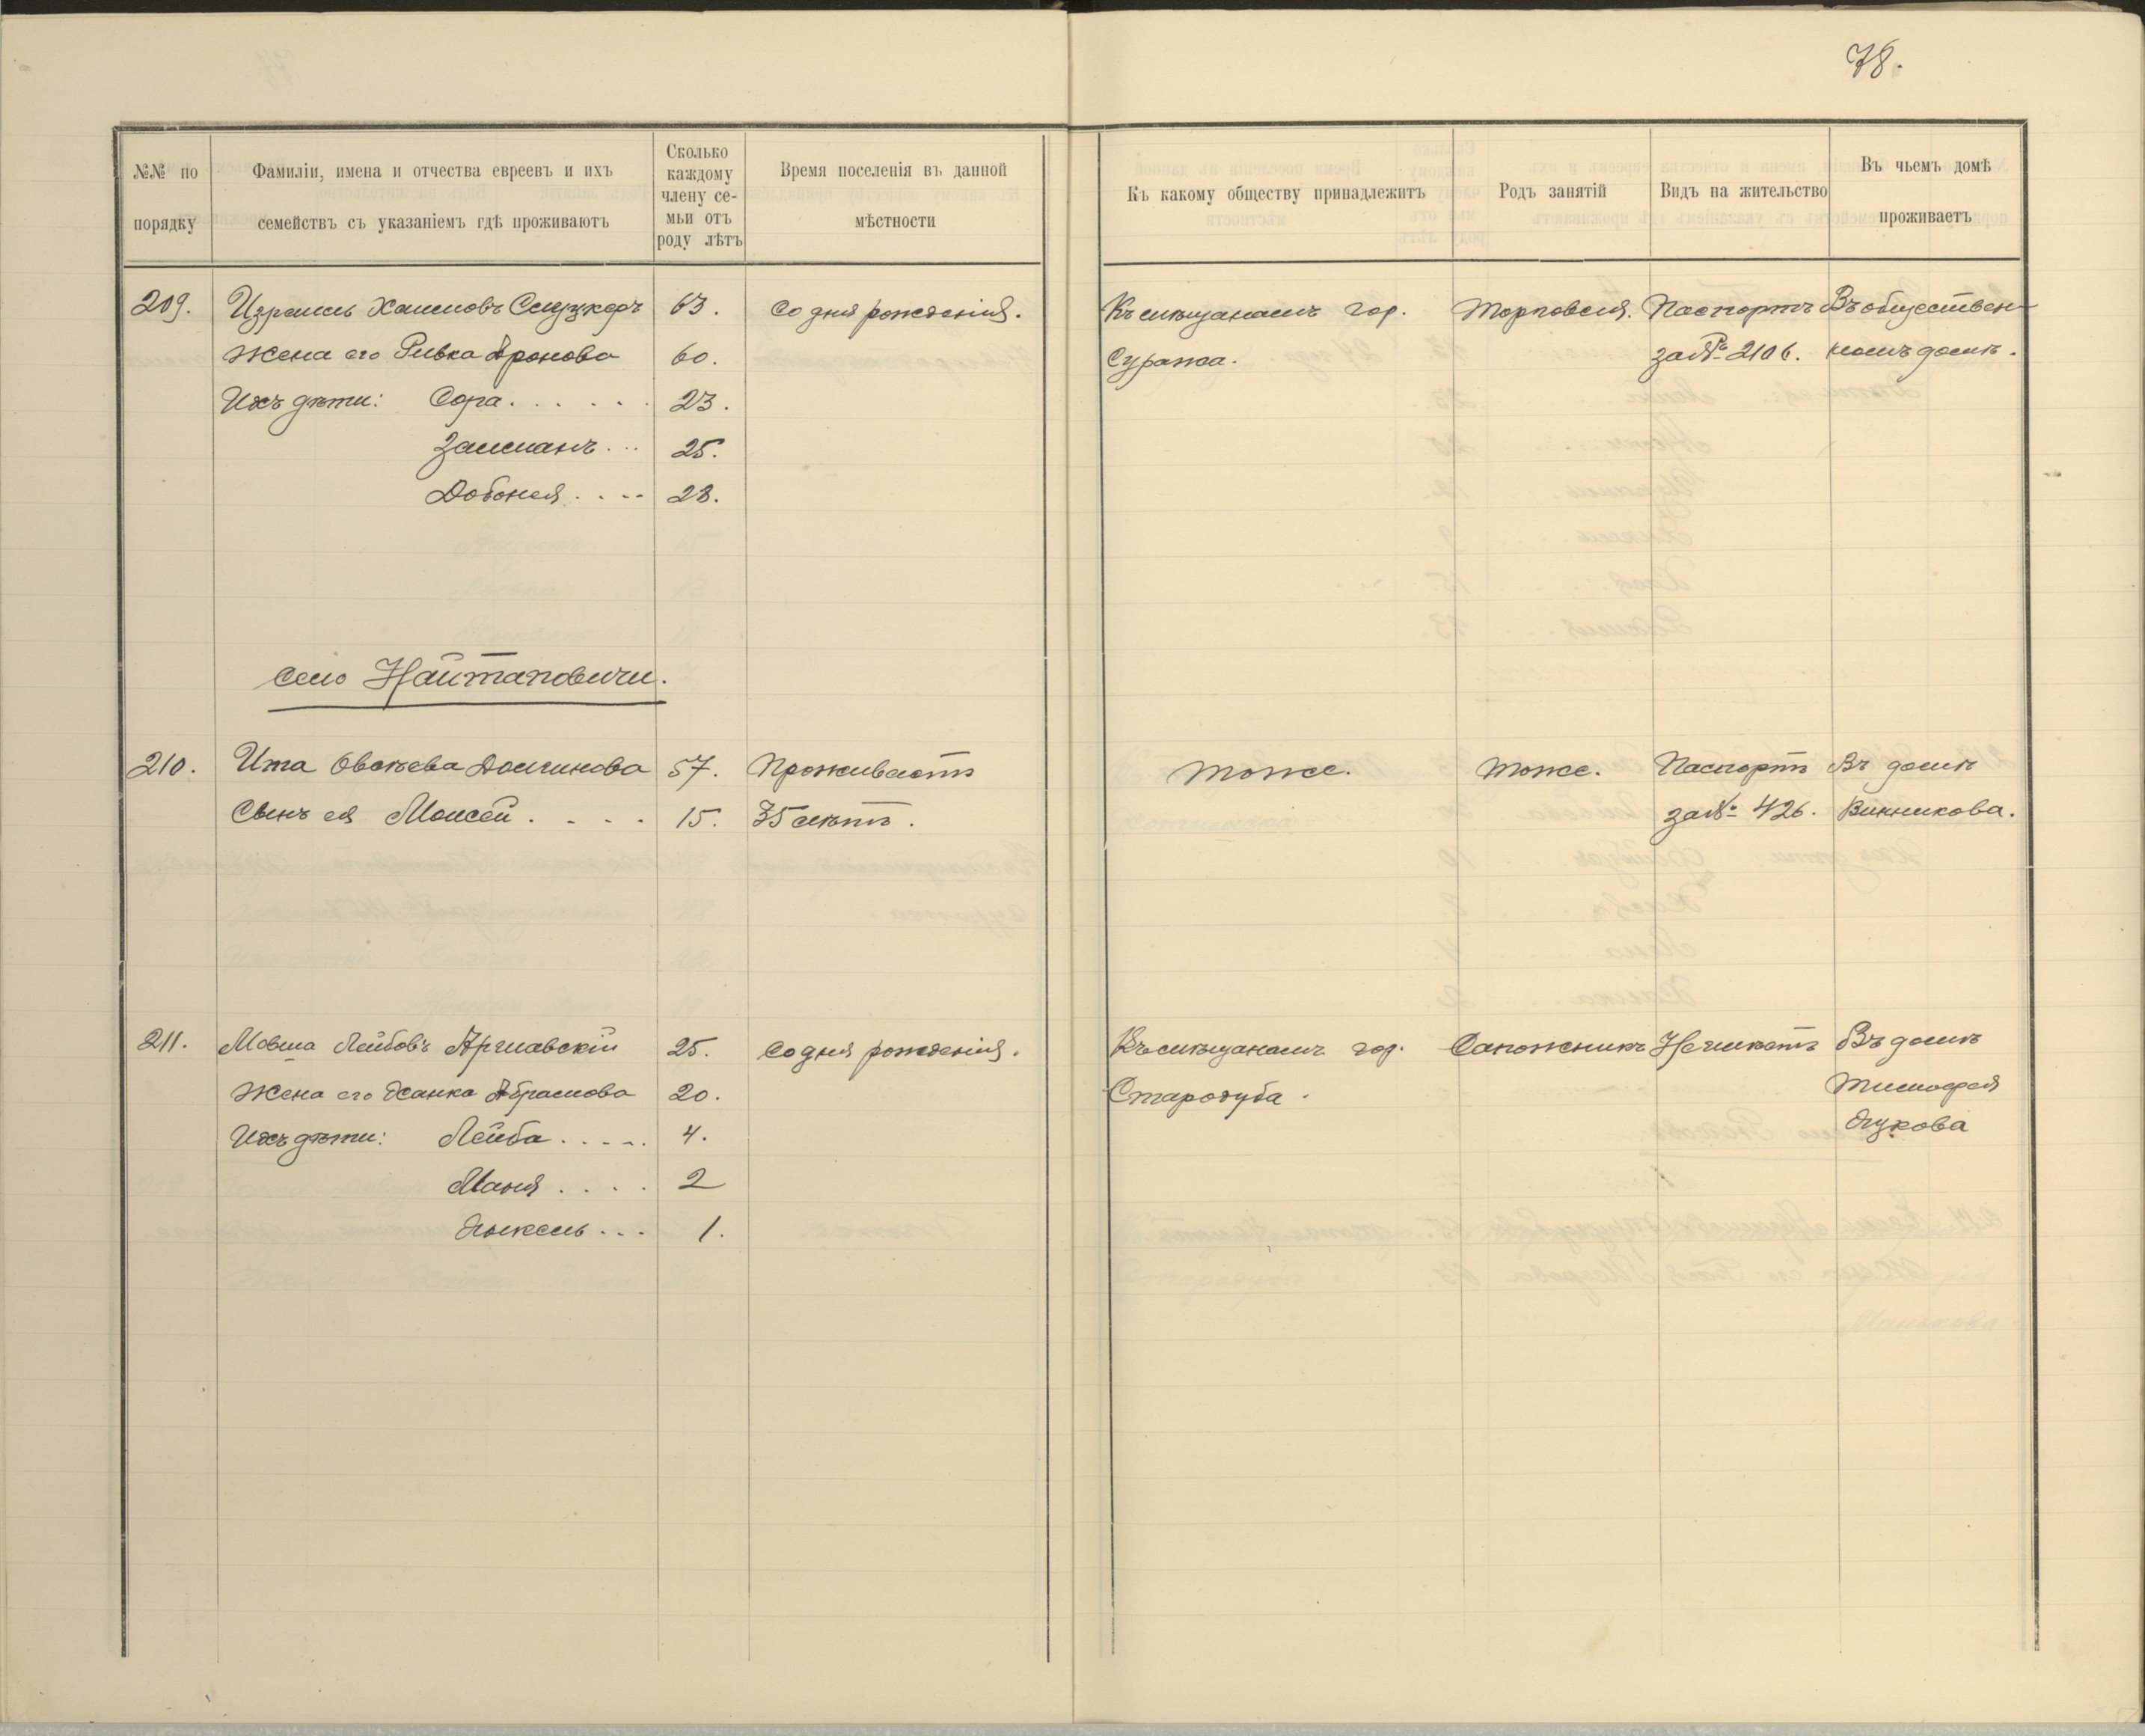 78.
№№ по порядку
Фамиліи, имена и отчества евреевъ и ихъ семействъ съ указаніемъ гдѣ проживаютъ
Сколько каждому члену се-мьи отъ роду лѣтъ
Время поселенія въ данной мѣстности
Къ какому обществу принадлежитъ
Родъ занятій
Видъ на жительство
Въ чьемъ домѣ проживаетъ
209. Израиль Хаимовъ Слуцкеръ 63. Со дня рожденія. Къ мѣщанамъ гор. Торговля. Паспортъ Въ обществен-
Жена его Ривка Аронова 60. Суража. за № 2106. номъ домѣ.
Ихъ дѣти: Сора . . . . . . 23.
Залманъ . . . 25.
Добоня . . . . 28.
Село Найтаповичи.
210. Ита Овсѣева Долгинова 57. Проживаетъ тоже. тоже. Паспортъ Въ домѣ
Сынъ ея Моисей . . . . 15. 35 лѣтъ. за № 426. Винникова.
211. Мовша Лейбовъ Аршавскій 25. Со дня рожденія. Къ мѣщанамъ гор. Сапожникъ Неимѣетъ Въ домѣ
Жена его Ханка Абрамова 20. Стародуба. Тимофея
Ихъ дѣти: Лейба . . . . . 4. Зукова
Маня . . . . 2
. . . 1.